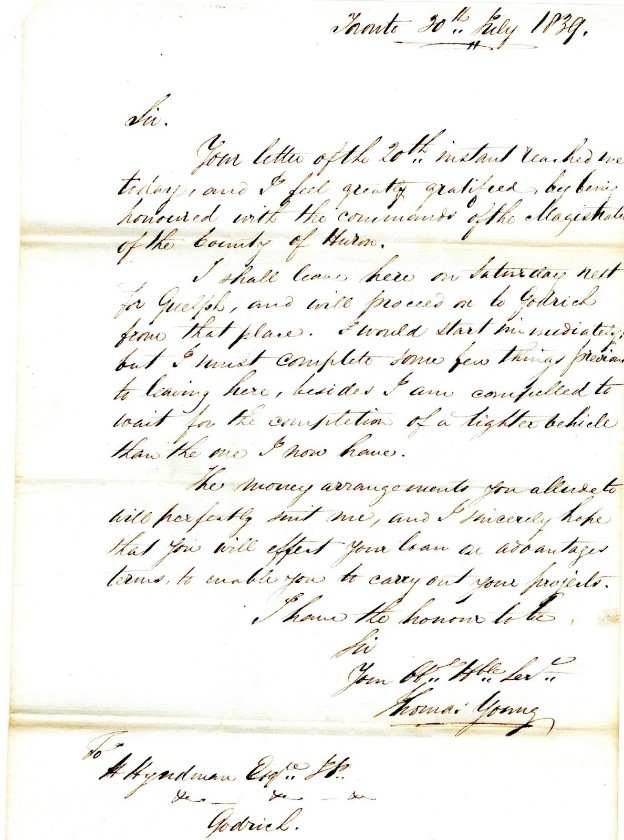 Toronto 30th July 1839.
Sir.
Your letter of the 20th instant reached me
today, and I feel greatly gratified, by being
honoured with the commands of the Magistrate
of the County of Huron.
I shall leave here on Saturday next
for Guelph, and will proceed on to Godrich
from that place. I would start immediately,
but I must complete some few things previous
to leaving here, besides I am compelled to
wait for the completion of a lighter vehicle
than the one I now have.
The money arrangements you allude to
will perfectly suit me, and I sincerely hope
that you will effect your loan on advantages
terms, to enable you to carry out your projects.
I have the honour to be,
Sir
Your Obt. Hble Servt.
Thomas Young
To
H Hyndman Esqre. JP.
&c &c &c
Godrich.